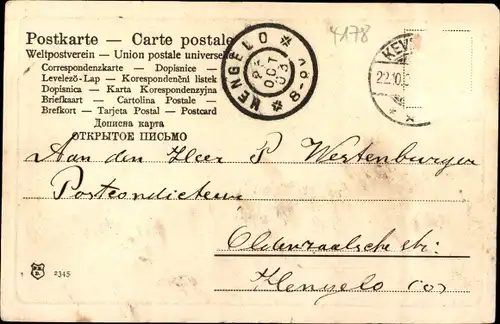 4178
Postkarte — Carte postale
Weltpostverein — Union postale universe
Correspondenzkarte — Dopisnice —
Levelező-Lap — Korespondenční listek
Dopisnica — Karta Korespondenzyjna
Briefkaart — Cartolina Postale —
Brefkort — Tarjeta Postal — Postcard
Дописна карта
ОТКРЫТОЕ ПИСЬМО
HENGELO
OCT
03
KEV
22.10
Aan den Heer P Westenburger
Postconducteur
Oldenzaalsche str:
Hengelo (O)
2345